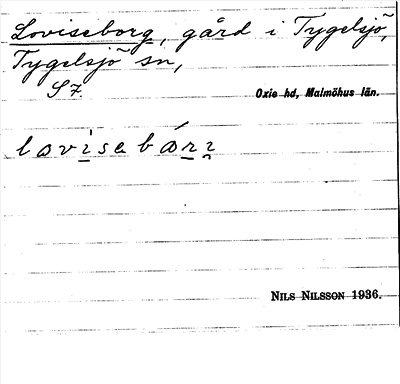 Loviseborg, gård i Tygelsjö,
Tygelsjö sn,
Sk.
Oxie hd, Malmöhus län.
NILS NILSSON 1936.